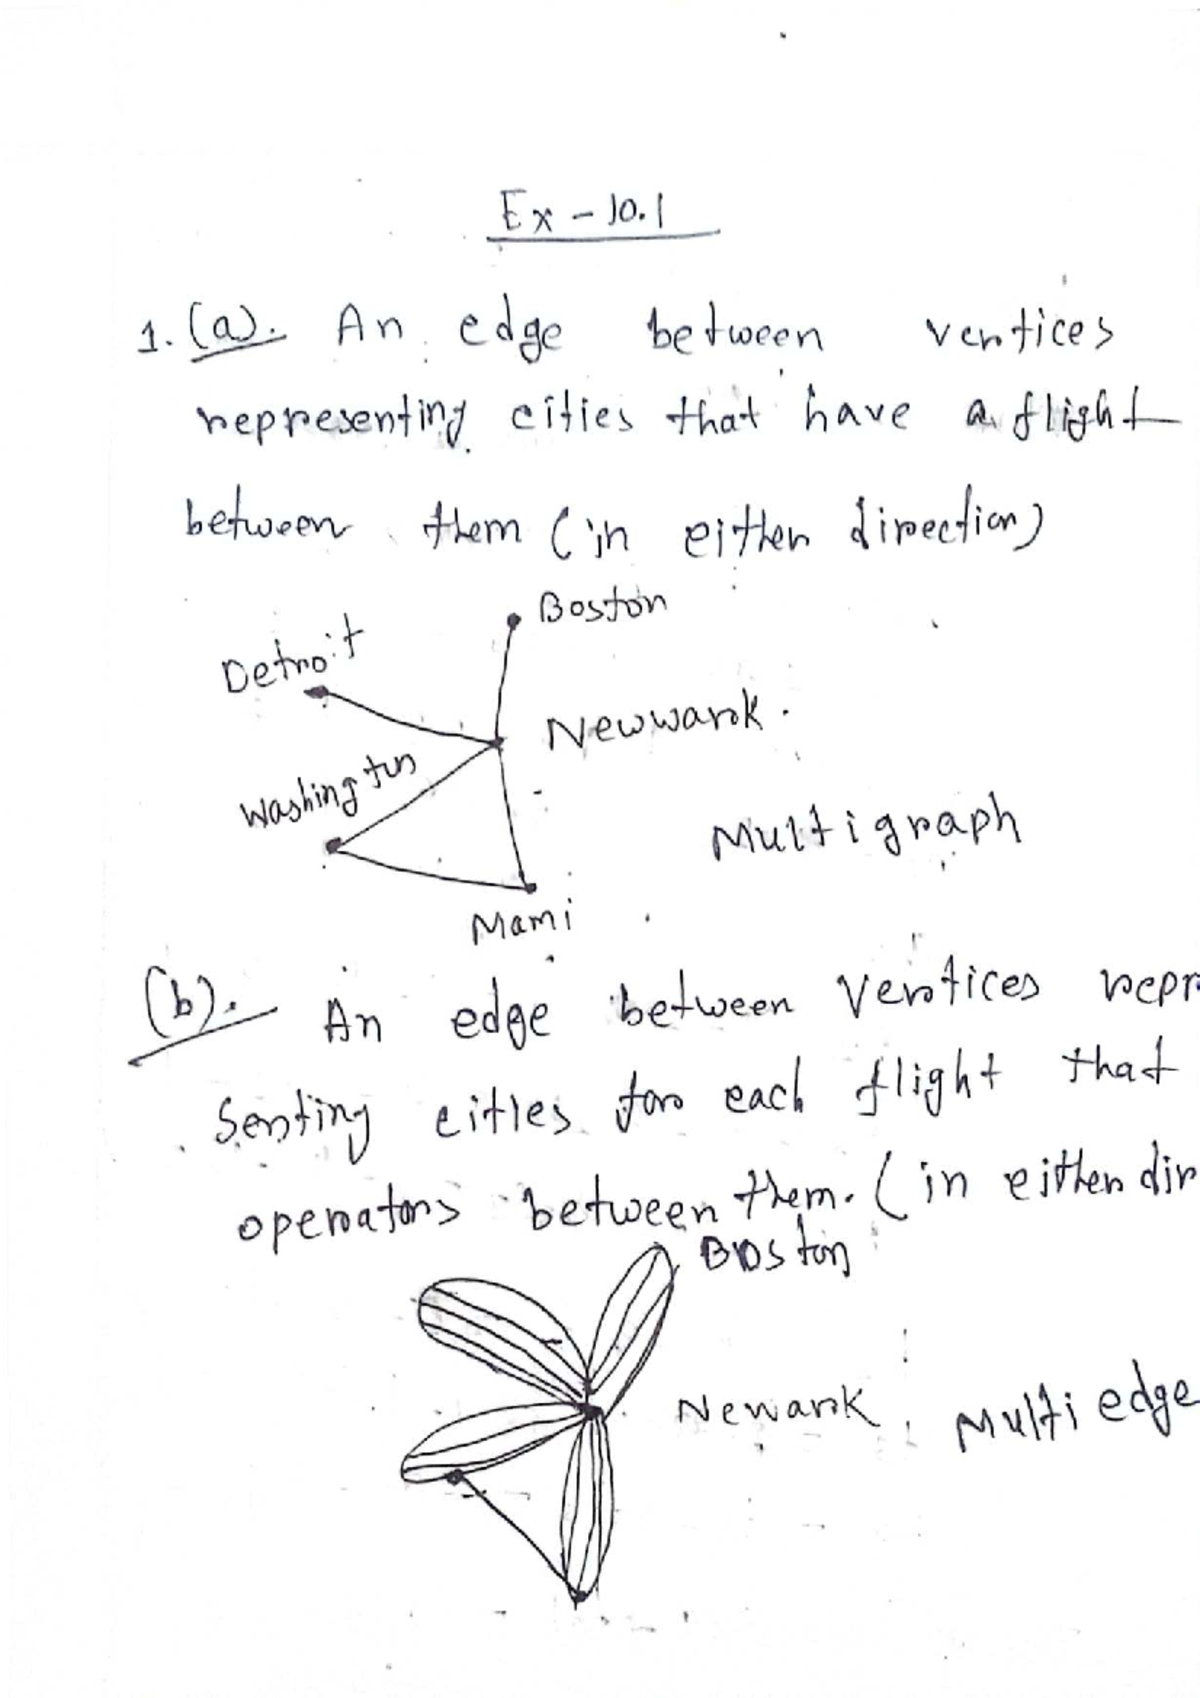 Ex - 10.1
1. (a). An edge between vertices
representing cities that have a flight
between them (in either direction)
Boston
Detroit
Newwark.
Washington
Multigraph
Mami
(b). An edge between Vertices repr
senting cities for each flight that
operators between them. (in either dir
Boston
Newark
Multi edge